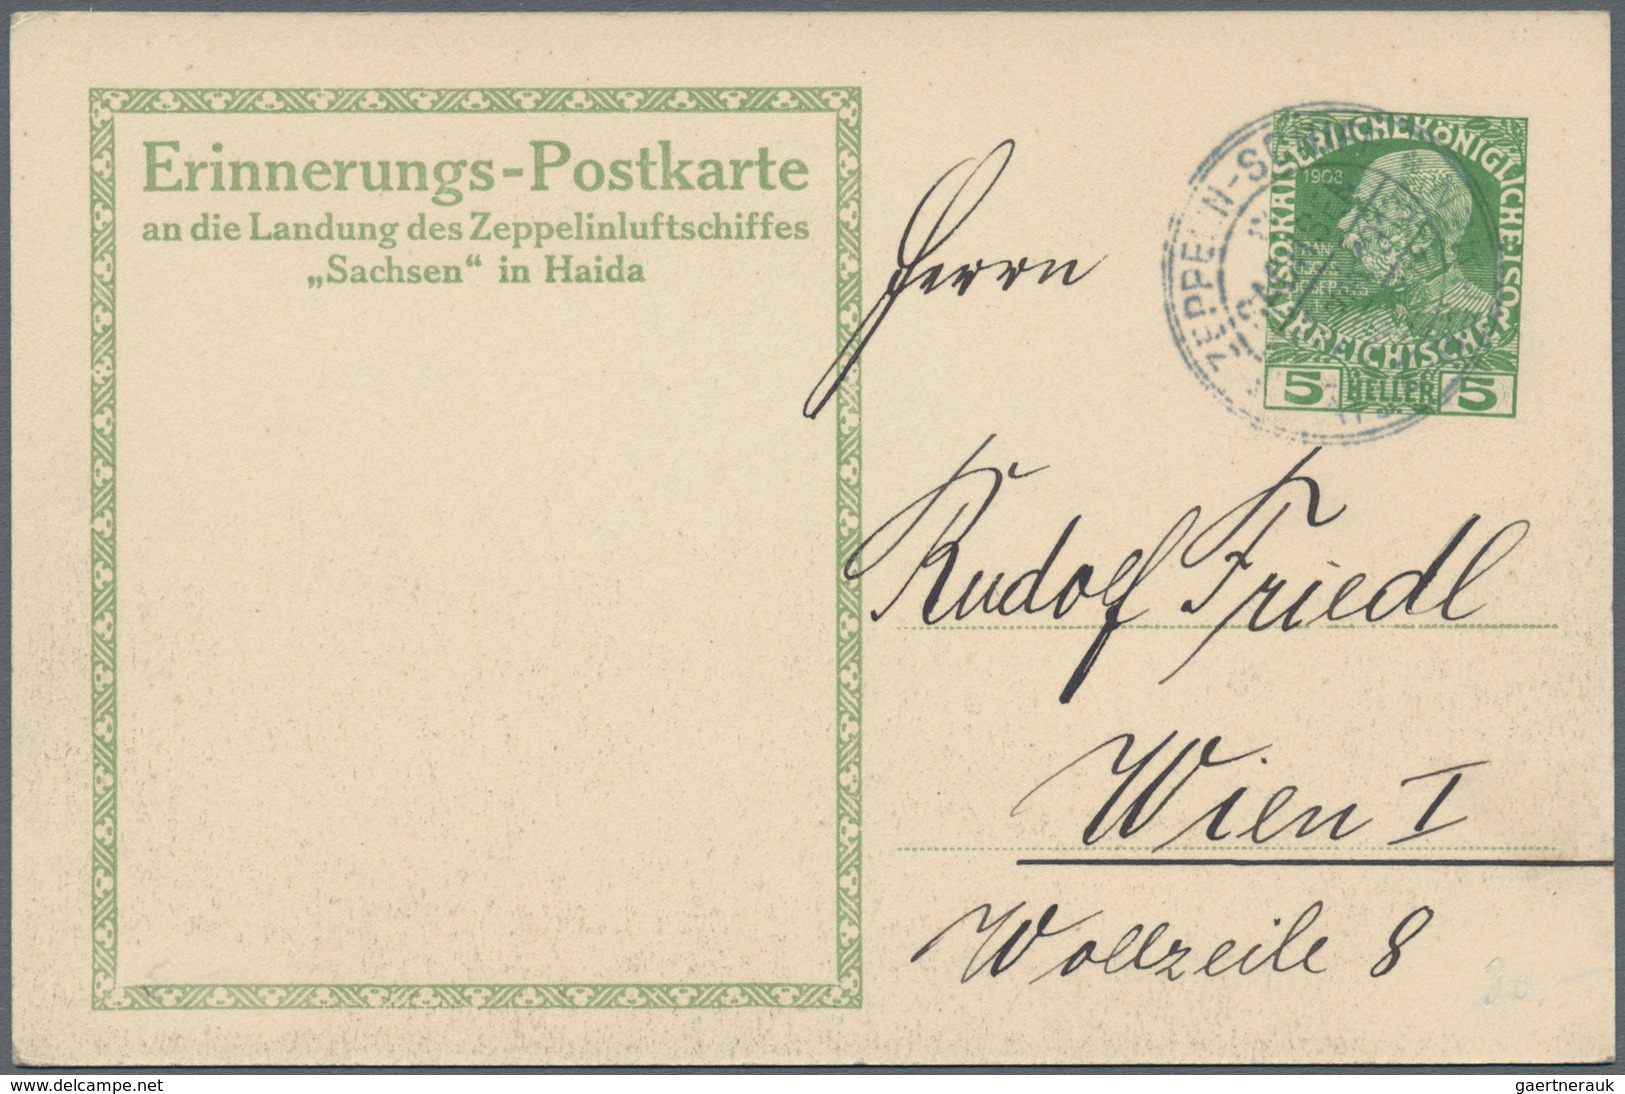 Erinnerungs-Postkarte
an die Landung des Zeppelinluftschiffes
„Sachsen“ in Haida
KAISERLICHEKÖNIGLICHE
ÖSTERREICHISCHE
1908
5 HELLER 5
ZEPPELIN
Herrn
Rudolf Friedl
Wien I
Wollzeile 8
30.-
gaertnerauk
www.delcampe.net